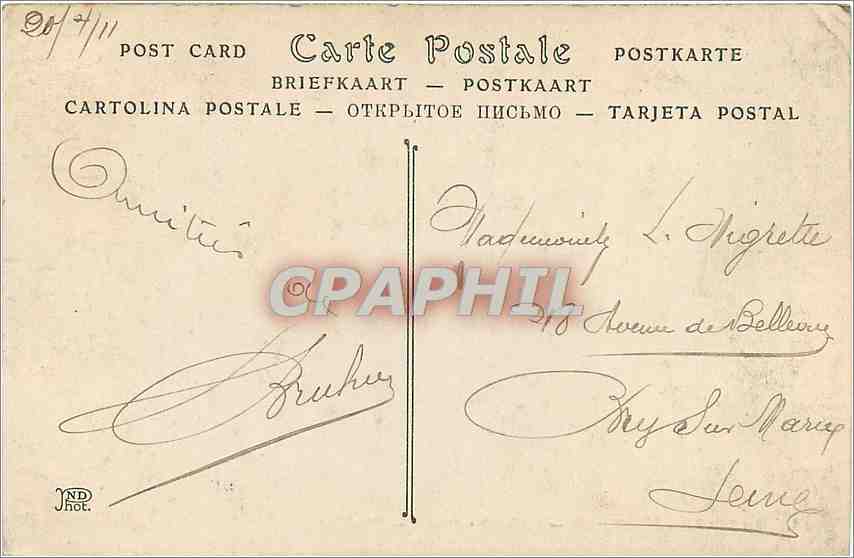 20/7/11
POST CARD Carte Postale POSTKARTE
BRIEFKAART — POSTKAART
CARTOLINA POSTALE — ОТКРЫТОЕ ПИСЬМО — TARJETA POSTAL
Amitiés
Mademoiselle L. Nigrette
218 Avenue de Bellevue
Bry Sur Marne
Seine
CPAPHIL
ND Phot.